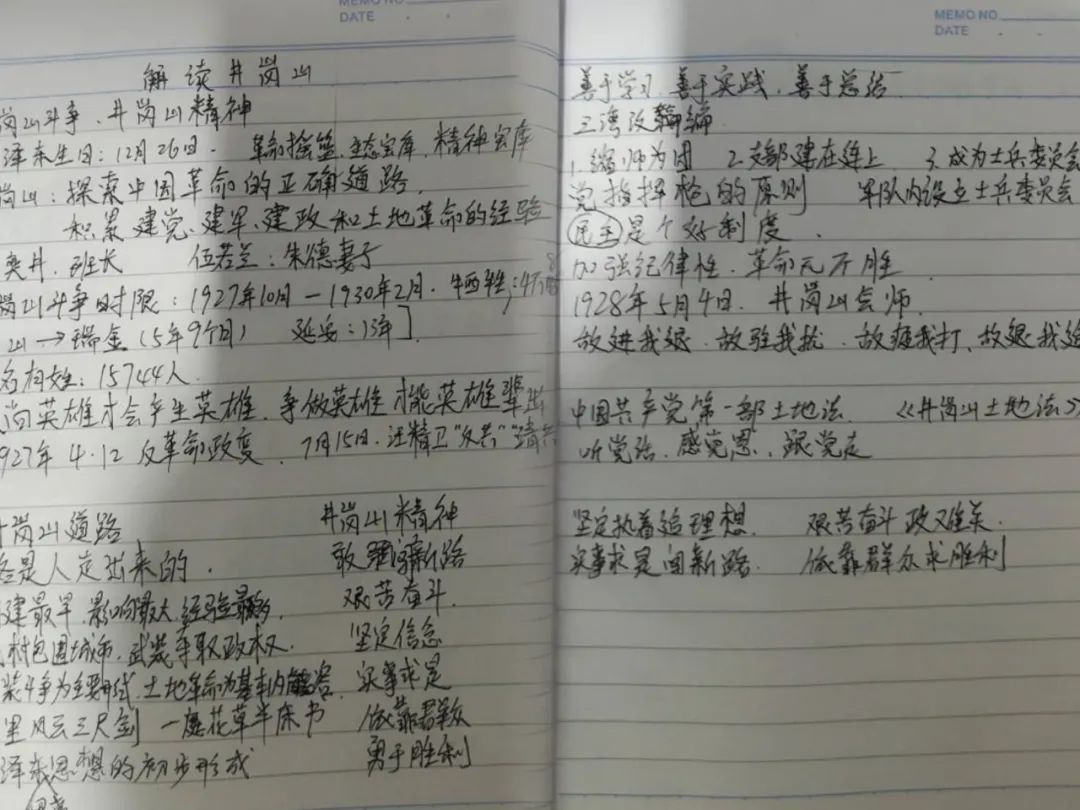 MEMO NO.
DATE
解读井岗山
岗山斗争、井岗山精神
泽东生日:12月26日. 革命摇篮、生态宝库、精神宝库
岗山:探索中国革命的正确道路.
积累建党、建军、建政和土地革命的经验
奕井、班长 伍若兰:朱德妻子
岗山斗争时限:1927年10月—1930年2月. 牺牲:4万
山→瑞金(5年9个月) 延安:13年]
名有姓:15744人.
英雄才会产生英雄、争做英雄才能英雄辈出
927年4.12反革命政变、7月15日.汪精卫"反共""清共
井岗山道路 井岗山精神
是人走出来的. 敢闯新路
建最早.影响最大.经验最多. 艰苦奋斗.
村包围城市.武装夺取政权. 坚定信念
装斗争为主要形式.土地革命为基本内容. 实事求是
里风云三尺剑 一庭花草半床书 依靠群众
泽东思想的初步形成 勇于胜利
MEMO NO.
DATE
善于学习、善于实践、善于总结
三湾改编
1.缩师为团 2.支部建在连上 3.成为士兵委员会
党指挥枪的原则 军队内设立士兵委员会
民主是个好制度.
加强纪律性.革命无不胜
1928年5月4日. 井岗山会师.
敌进我退.敌驻我扰.敌疲我打、敌退我追
中国共产党第一部土地法. 《井岗山土地法》
听党话、感党恩、跟党走
坚定执着追理想. 艰苦奋斗政难关.
实事求是闯新路. 依靠群众求胜利